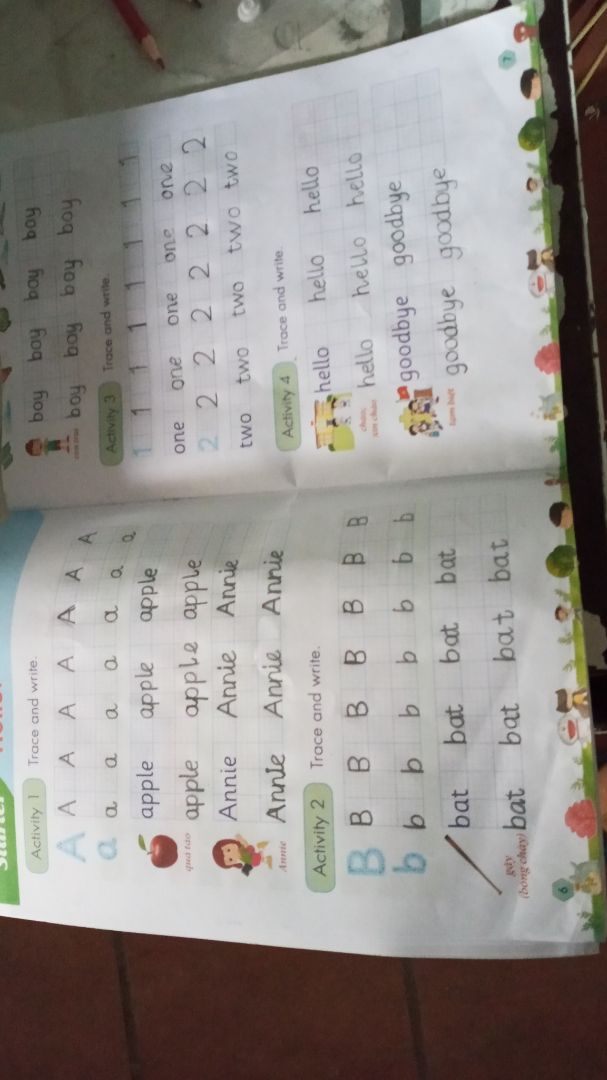 Activity 1 Trace and write.
A A A A A A A A
a a a a a a a a
apple apple apple
apple apple apple
quả táo
Annie Annie Annie
Annie Annie Annie
Annie
Activity 2 Trace and write.
B B B B B B B B
b b b b b b b b
bat bat bat bat
bat bat bat bat
gậy
(bóng chày)
6
boy boy boy boy
boy boy boy boy
con trai
Activity 3 Trace and write.
1 1 1 1 1 1 1 1
one one one one one
2 2 2 2 2 2 2 2
two two two two two
Activity 4 Trace and write.
hello hello hello
hello hello hello
chào,
xin chào
goodbye goodbye
goodbye goodbye
tạm biệt
7